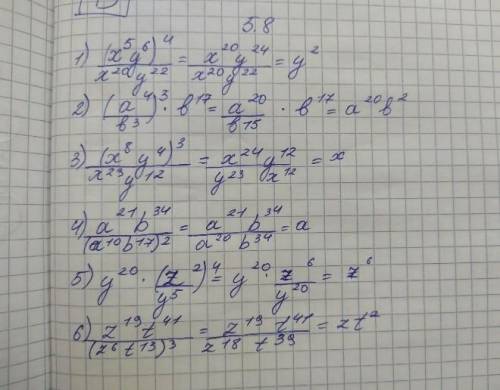 5.8
1) (x⁵y⁶)⁴/x²⁰y²² = x²⁰y²⁴/x²⁰y²² = y²
2) (a⁴/b³)³ · b¹⁷ = a²⁰/b¹⁵ · b¹⁷ = a²⁰b²
3) (x⁸y⁴)³/x²³y¹² = x²⁴y¹²/y²³x¹² = x
4) a²¹b³⁴/(a¹⁰b¹⁷)² = a²¹b³⁴/a²⁰b³⁴ = a
5) y²⁰ · (z²/y⁵)⁴ = y²⁰ · z⁶/y²⁰ = z⁶
6) z¹⁹t⁴¹/(z⁶t¹³)³ = z¹⁹t⁴¹/z¹⁸t³⁹ = zt²